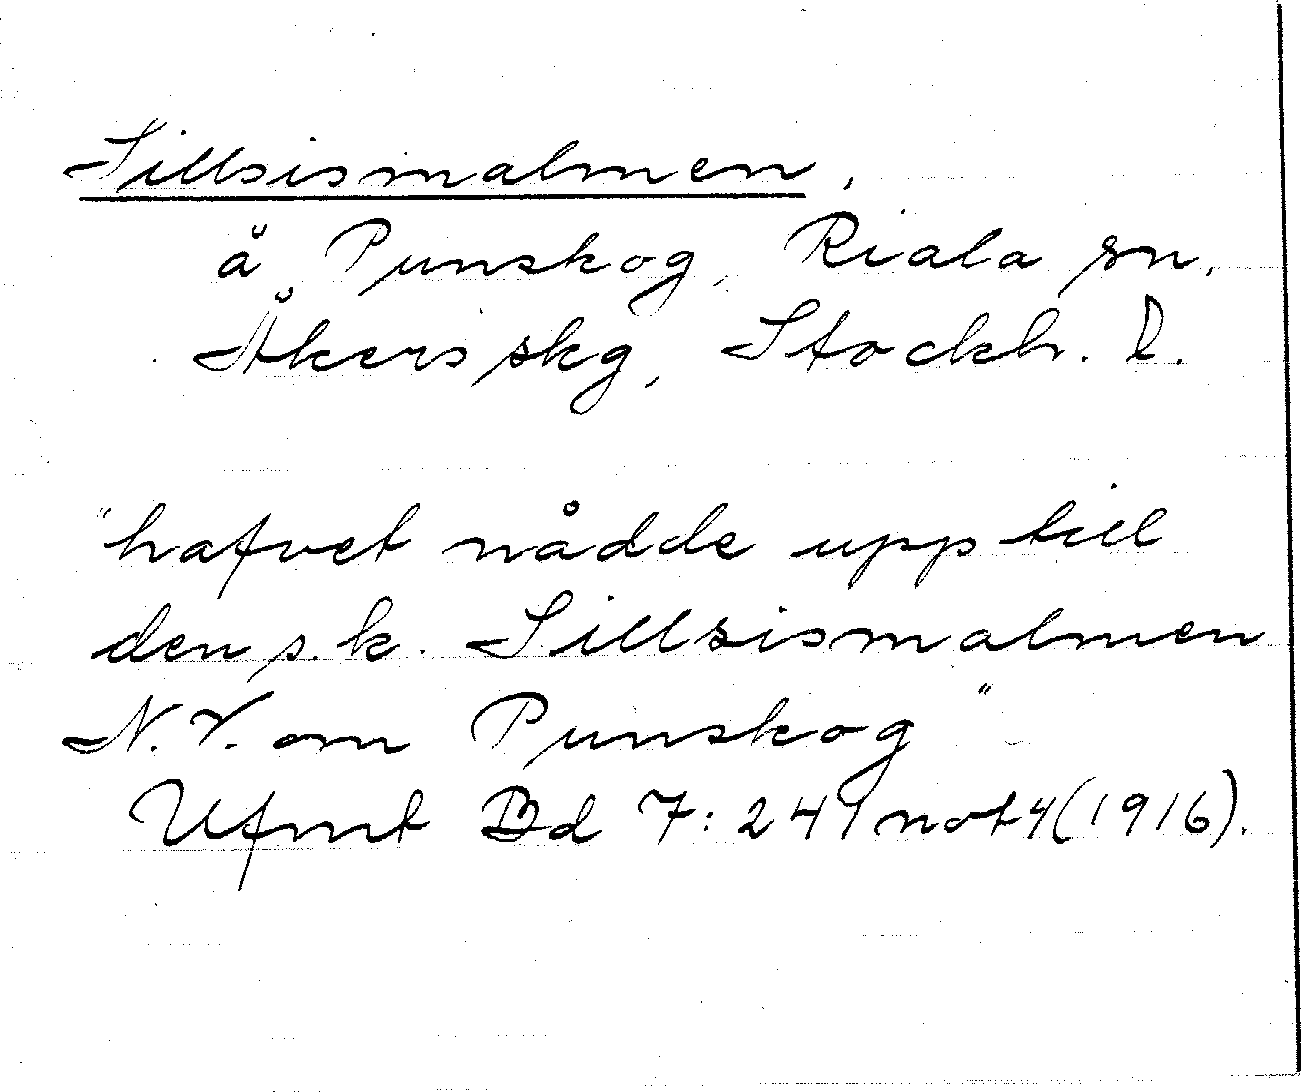 Sillsismalmen,
å Punskog, Riala sn,
Åkers skg, Stockh. l.
"hafvet nådde upp till
den s.k. Sillsismalmen
N.V. om Punskog"
Ufmt Bd 7: 241 not 4 (1916).